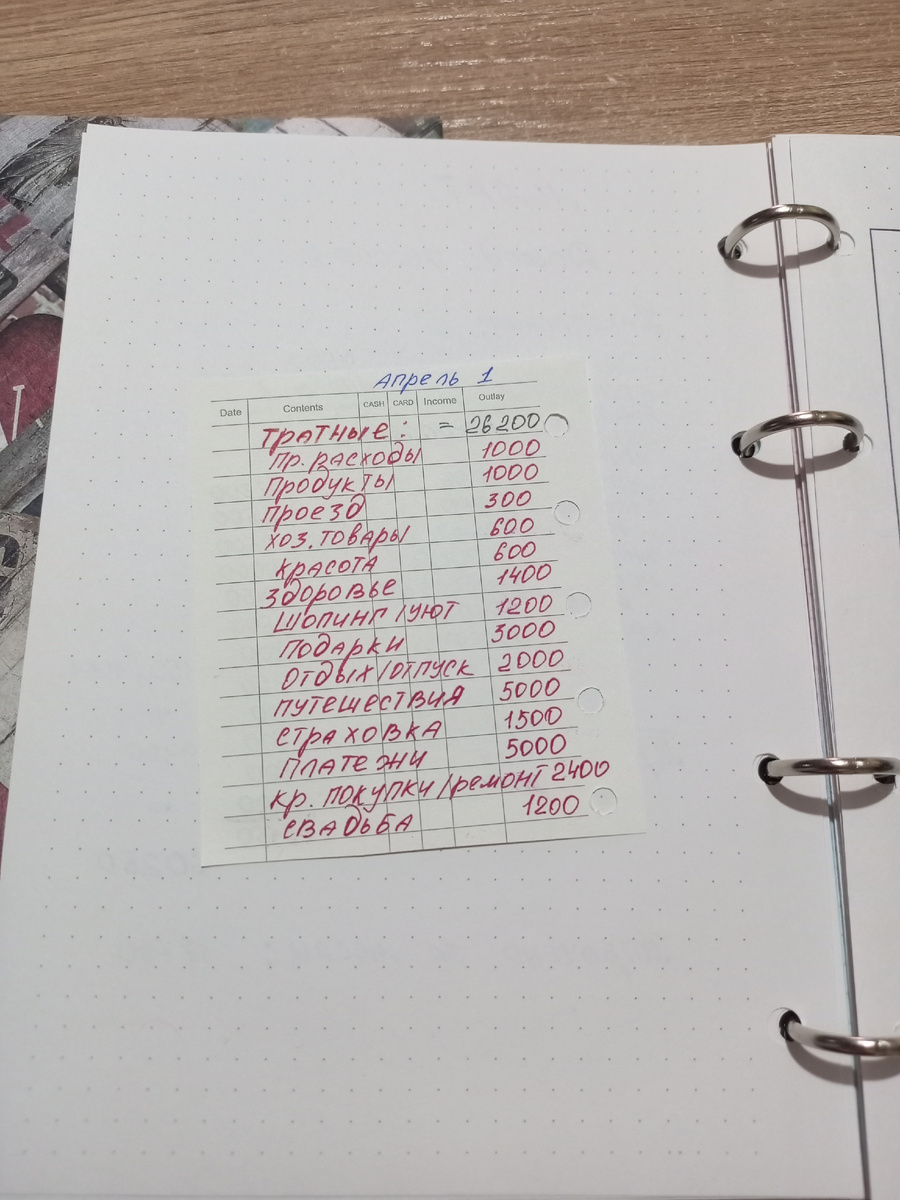 Апрель 1
Date Contents CASH CARD Income Outlay
Тратные: = 26200
Пр. расходы 1000
Продукты 1000
Проезд 300
Хоз. товары 600
Красота 600
Здоровье 1400
Шопинг/уют 1200
Подарки 3000
Отдых/отпуск 2000
Путешествия 5000
Страховка 1500
Платежи 5000
Кр. покупки/ремонт 2400
Свадьба 1200